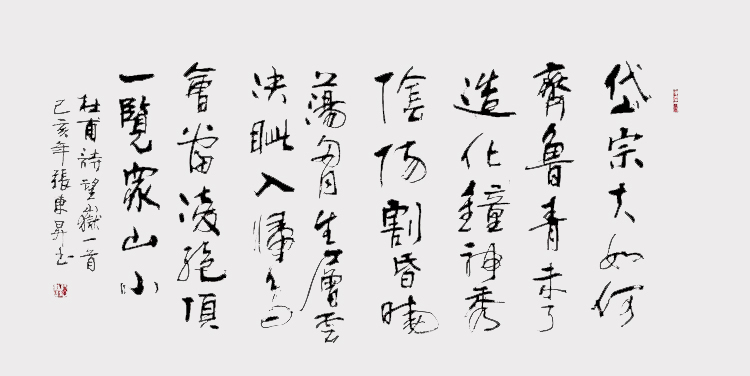 岱宗夫如何
齊魯青未了
造化鐘神秀
陰陽割昏曉
蕩胷生層雲
決眦入歸鳥
會當凌絕頂
一覽眾山小
杜甫詩望嶽一首
己亥年張東昇书